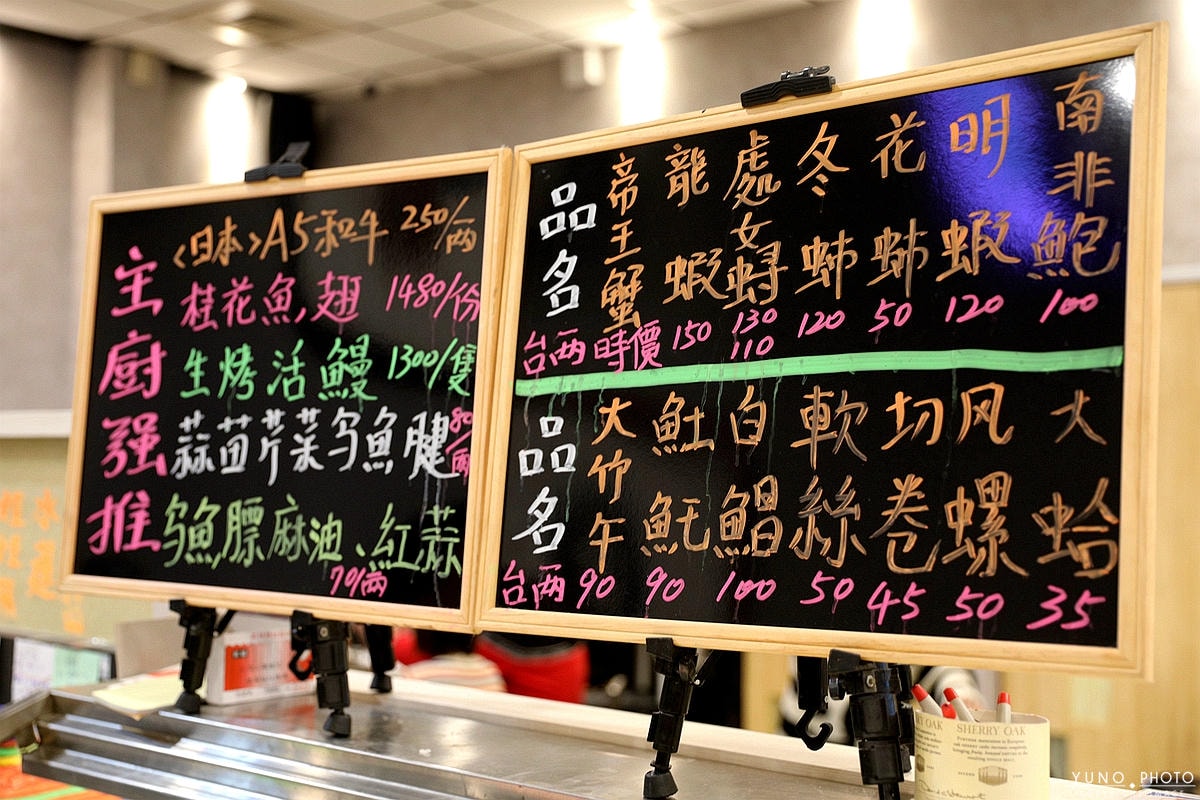 主廚强推
<日本>A5和牛 250/两
桂花魚翅 1480/份
生烤活鰻 1300/隻
蒜苗芹菜烏魚腱 80/两
烏魚膘麻油、紅蒜
70/两
品名 帝王蟹 龍蝦 處女蟳 冬蚵 花蚵 明蝦 南非鮑
台两 時價 150 130 110 120 50 120 100
品名 大竹午 魟魠 白鯧 軟絲 切卷 风螺 大蛤
台两 90 90 100 50 45 50 35
SHERRY OAK
YUNO PHOTO